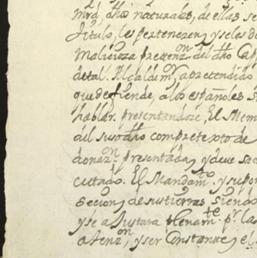 mrd. dhos naturales, de ellas se
titulo, les pertenezen, y se les d
malicioza pretenzn. del dho Cap
de tal. Alcaldm, a pretendido
que defiende, a los españoles s
hablar. presentandose, El Mem
del susodho con pretexto de
donazn. presentada, y deve se
cutado. El Mandamto. y supo
secion de sus tierras siendo
y se a Justara plenamte. pr. las
atenzn. y ser Constante, e